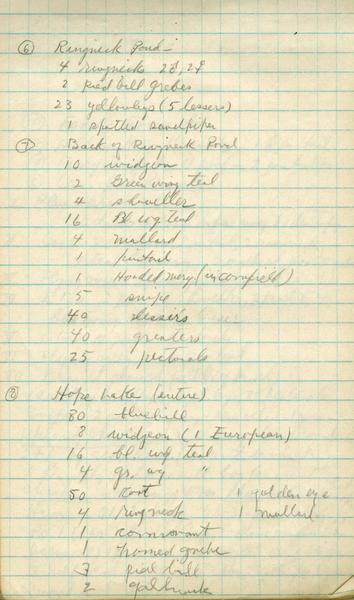 ⑥ Ringneck Pond -
4 ringnecks 2♂, 2♀
2 Pied bill grebes
23 yellowlegs (5 lessers)
1 spotted sandpiper
⑦ Back of Ringneck Pond
10 widgeon
2 Green wing teal
4 shoveller
16 Bl. wg teal
4 mallard
1 pintail
1 Hooded merg. (in cornfield)
5 snipe
40 lessers
40 greaters
25 pectorals
⑧ Hope Lake (entire)
80 bluebill
8 widgeon (1 European)
16 bl. wg teal
4 gr. wg "
50 coot 1 golden eye
4 ringneck 1 mallard
1 cormorant
1 horned grebe
3 pied bill
2 gallinule